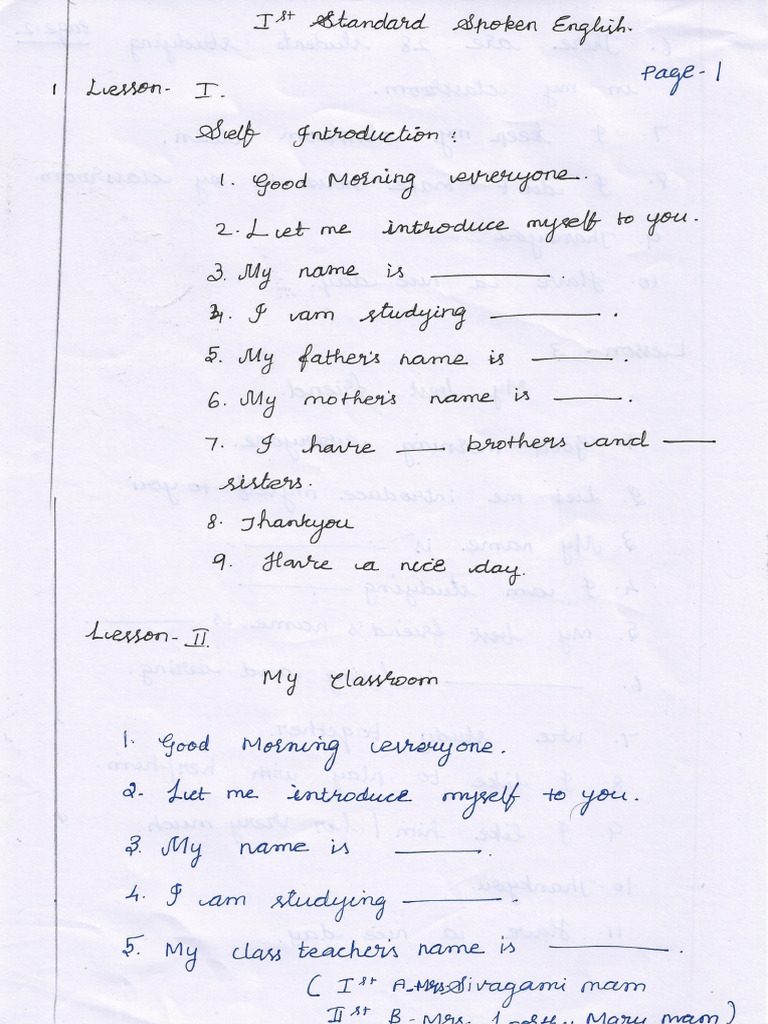 Ist Standard Spoken English.
Page-1
1 Lesson- I.
Self Introduction:
1. Good Morning everyone.
2. Let me introduce myself to you.
3. My name is ________.
4. I am studying ________.
5. My father's name is ________.
6. My mother's name is ________.
7. I have ____ brothers and ____
sisters.
8. Thankyou
9. Have a nice day.
Lesson-II.
My Classroom
1. Good Morning everyone.
2. Let me introduce myself to you.
3. My name is ________.
4. I am studying ________.
5. My class teacher's name is ________.
( Ist A-Mrs.Sivagami mam
IIst B-Mrs. Mary mam)